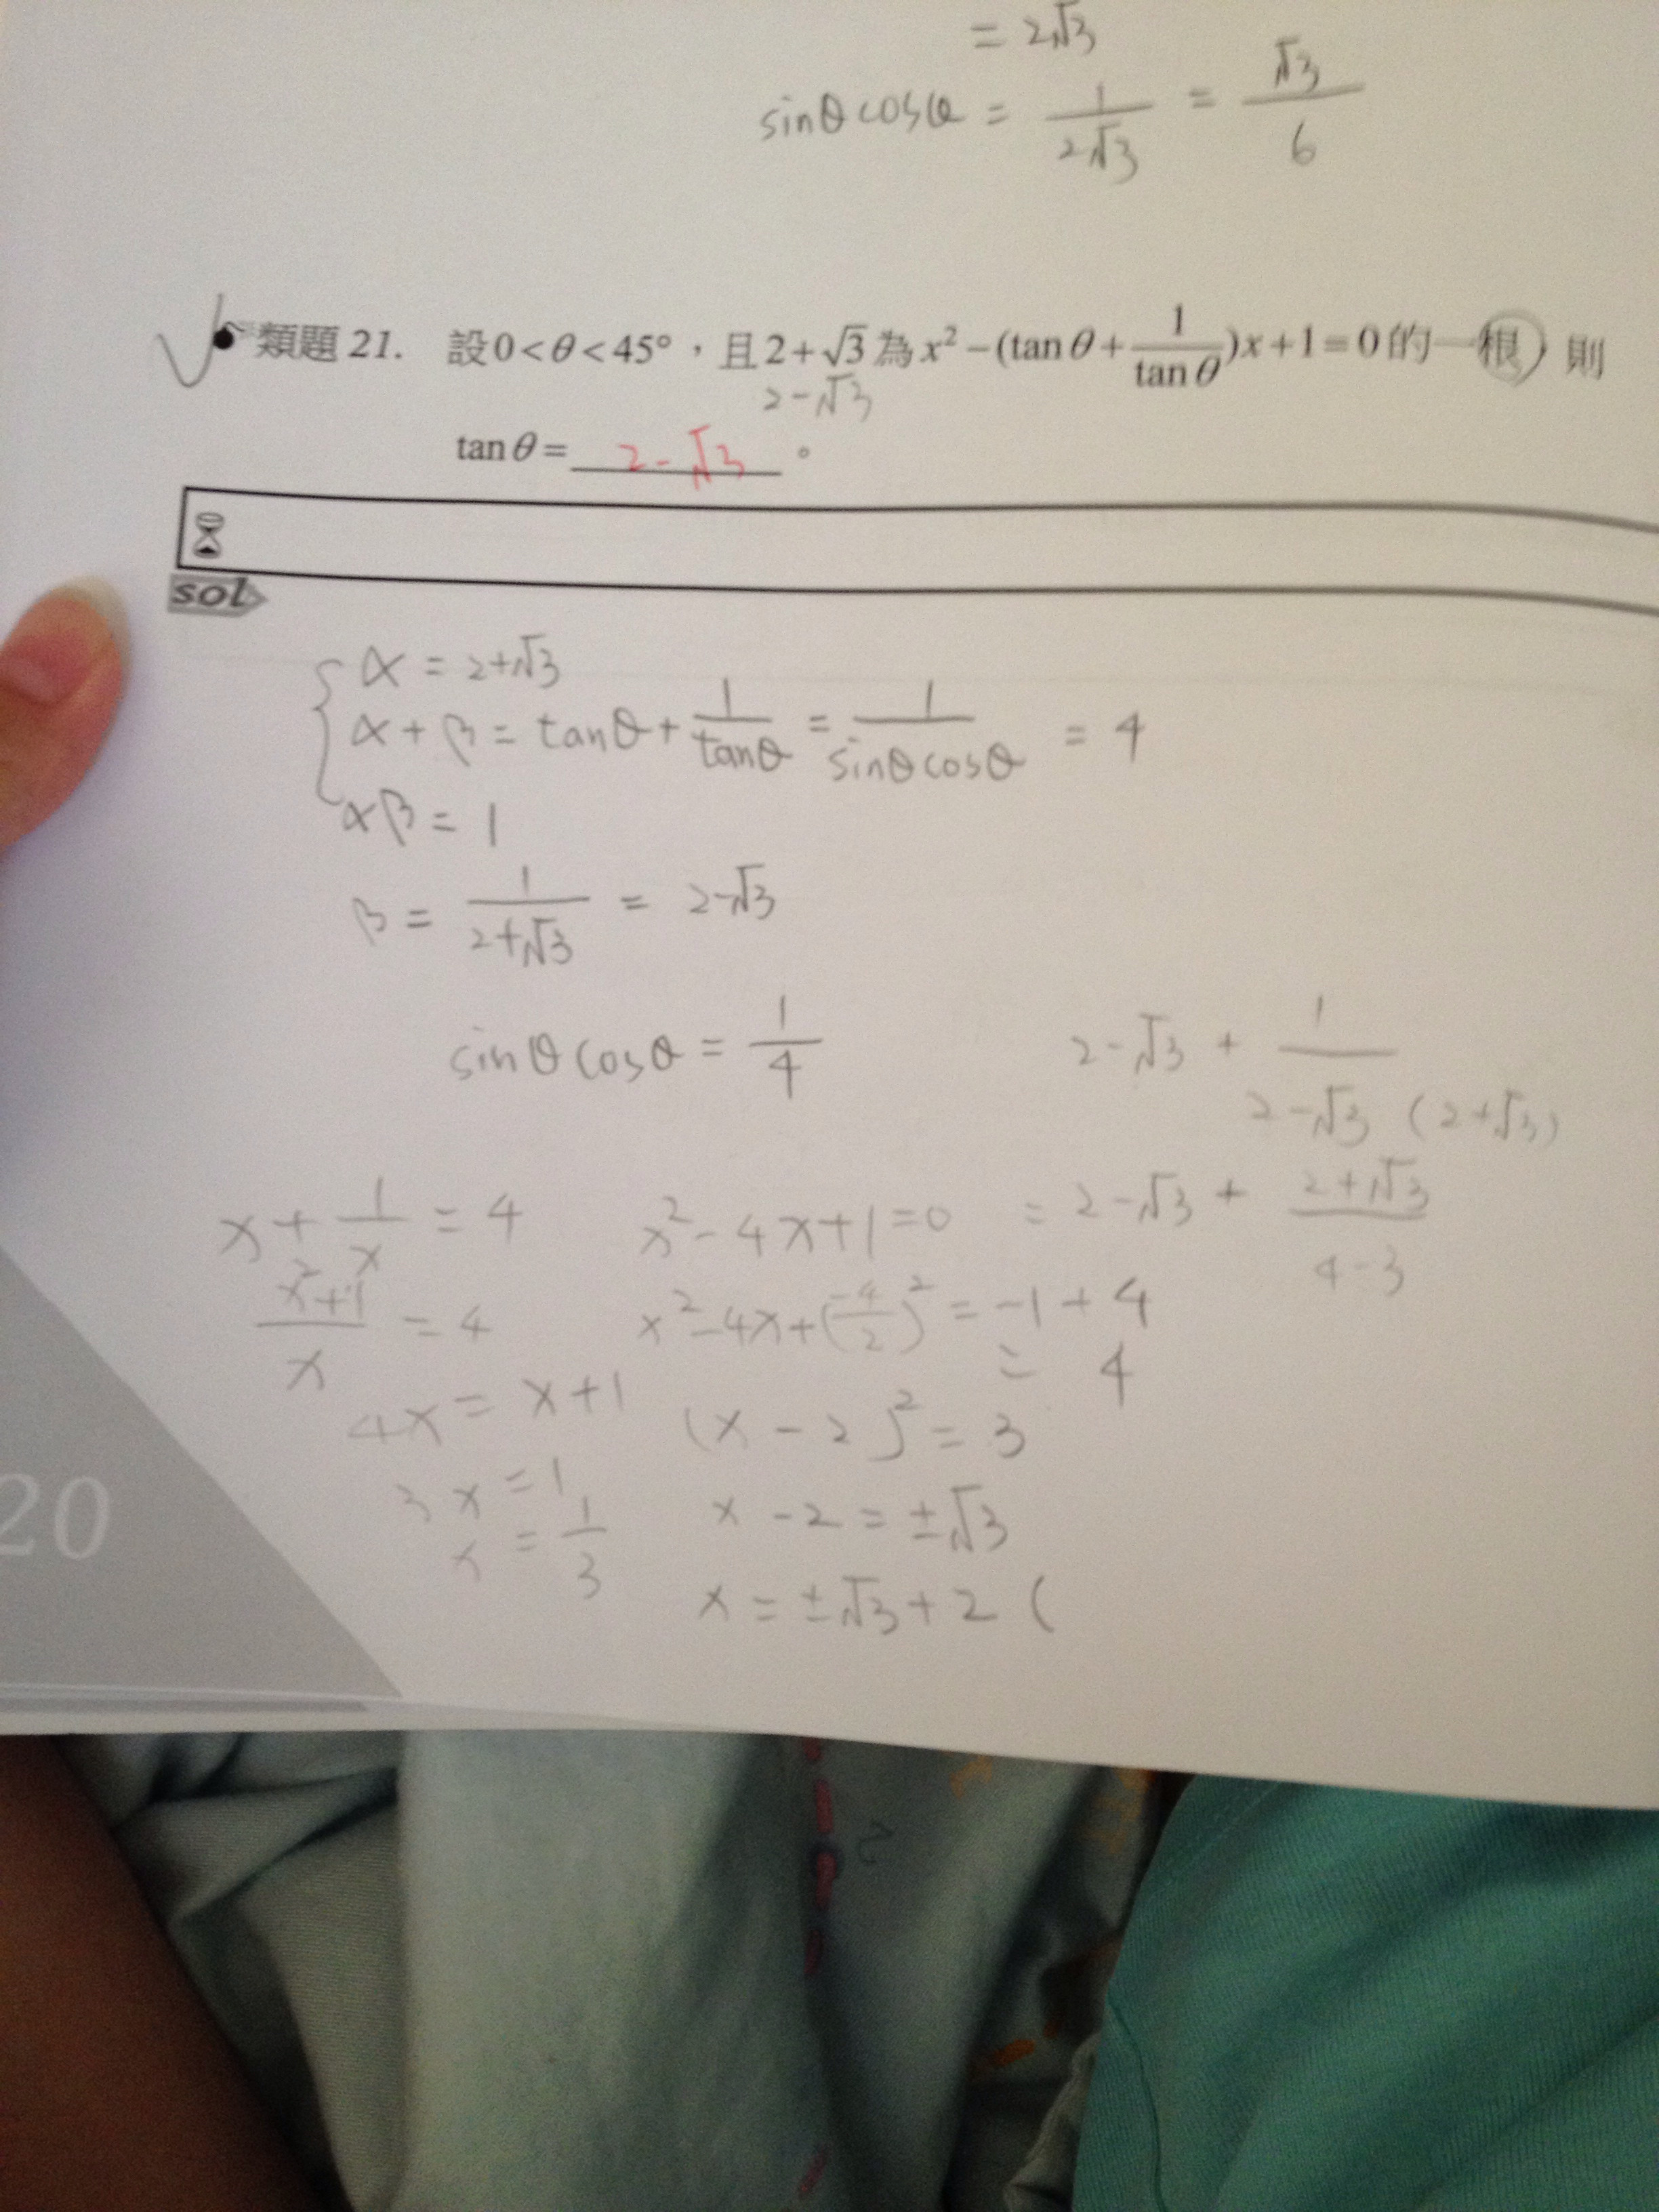 = 2√3
sinθ cosθ = 1/(2√3) = √3/6
類題 21. 設 0<θ<45°，且 2+√3 為 x²−(tanθ+1/tanθ)x+1=0 的一根，則
2-√3
tanθ= 2-√3 。
sol
α = 2+√3
α+β = tanθ + 1/tanθ = 1/(sinθ cosθ) = 4
αβ = 1
β = 1/(2+√3) = 2-√3
sinθ cosθ = 1/4
2-√3 + 1/(2-√3 (2+√3)
= 2-√3 + (2+√3)/(4-3)
x + 1/x = 4
(x²+1)/x = 4
4x = x+1
3x = 1
x = 1/3
x²-4x+1=0
x²-4x+(-4/2)² = -1+4
= 4
(x-2)² = 3
x-2 = ±√3
x = ±√3+2 (
20